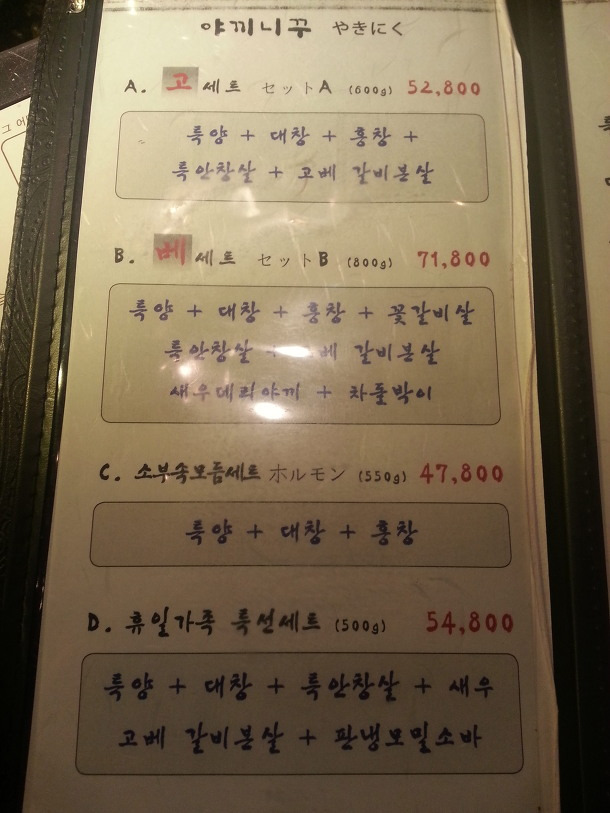 야끼니꾸 やきにく
A. 고 세트 セットA (600g) 52,800
특양 + 대창 + 홍창 +
특안창살 + 고베 갈비본살
B. 베 세트 セットB (800g) 71,800
특양 + 대창 + 홍창 + 꽃갈비살
특안창살 + 베 갈비본살
새우데리야끼 + 차돌박이
C. 소부속모듬세트 ホルモン (550g) 47,800
특양 + 대창 + 홍창
D. 휴일가족 특선세트 (500g) 54,800
특양 + 대창 + 특안창살 + 새우
고베 갈비본살 + 판냉모밀소바